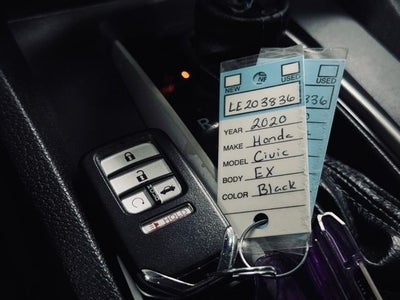 NEW USED
LE203836
YEAR 2020
MAKE Honda
MODEL Civic
BODY EX
COLOR Black
USED
836
HOLD
R